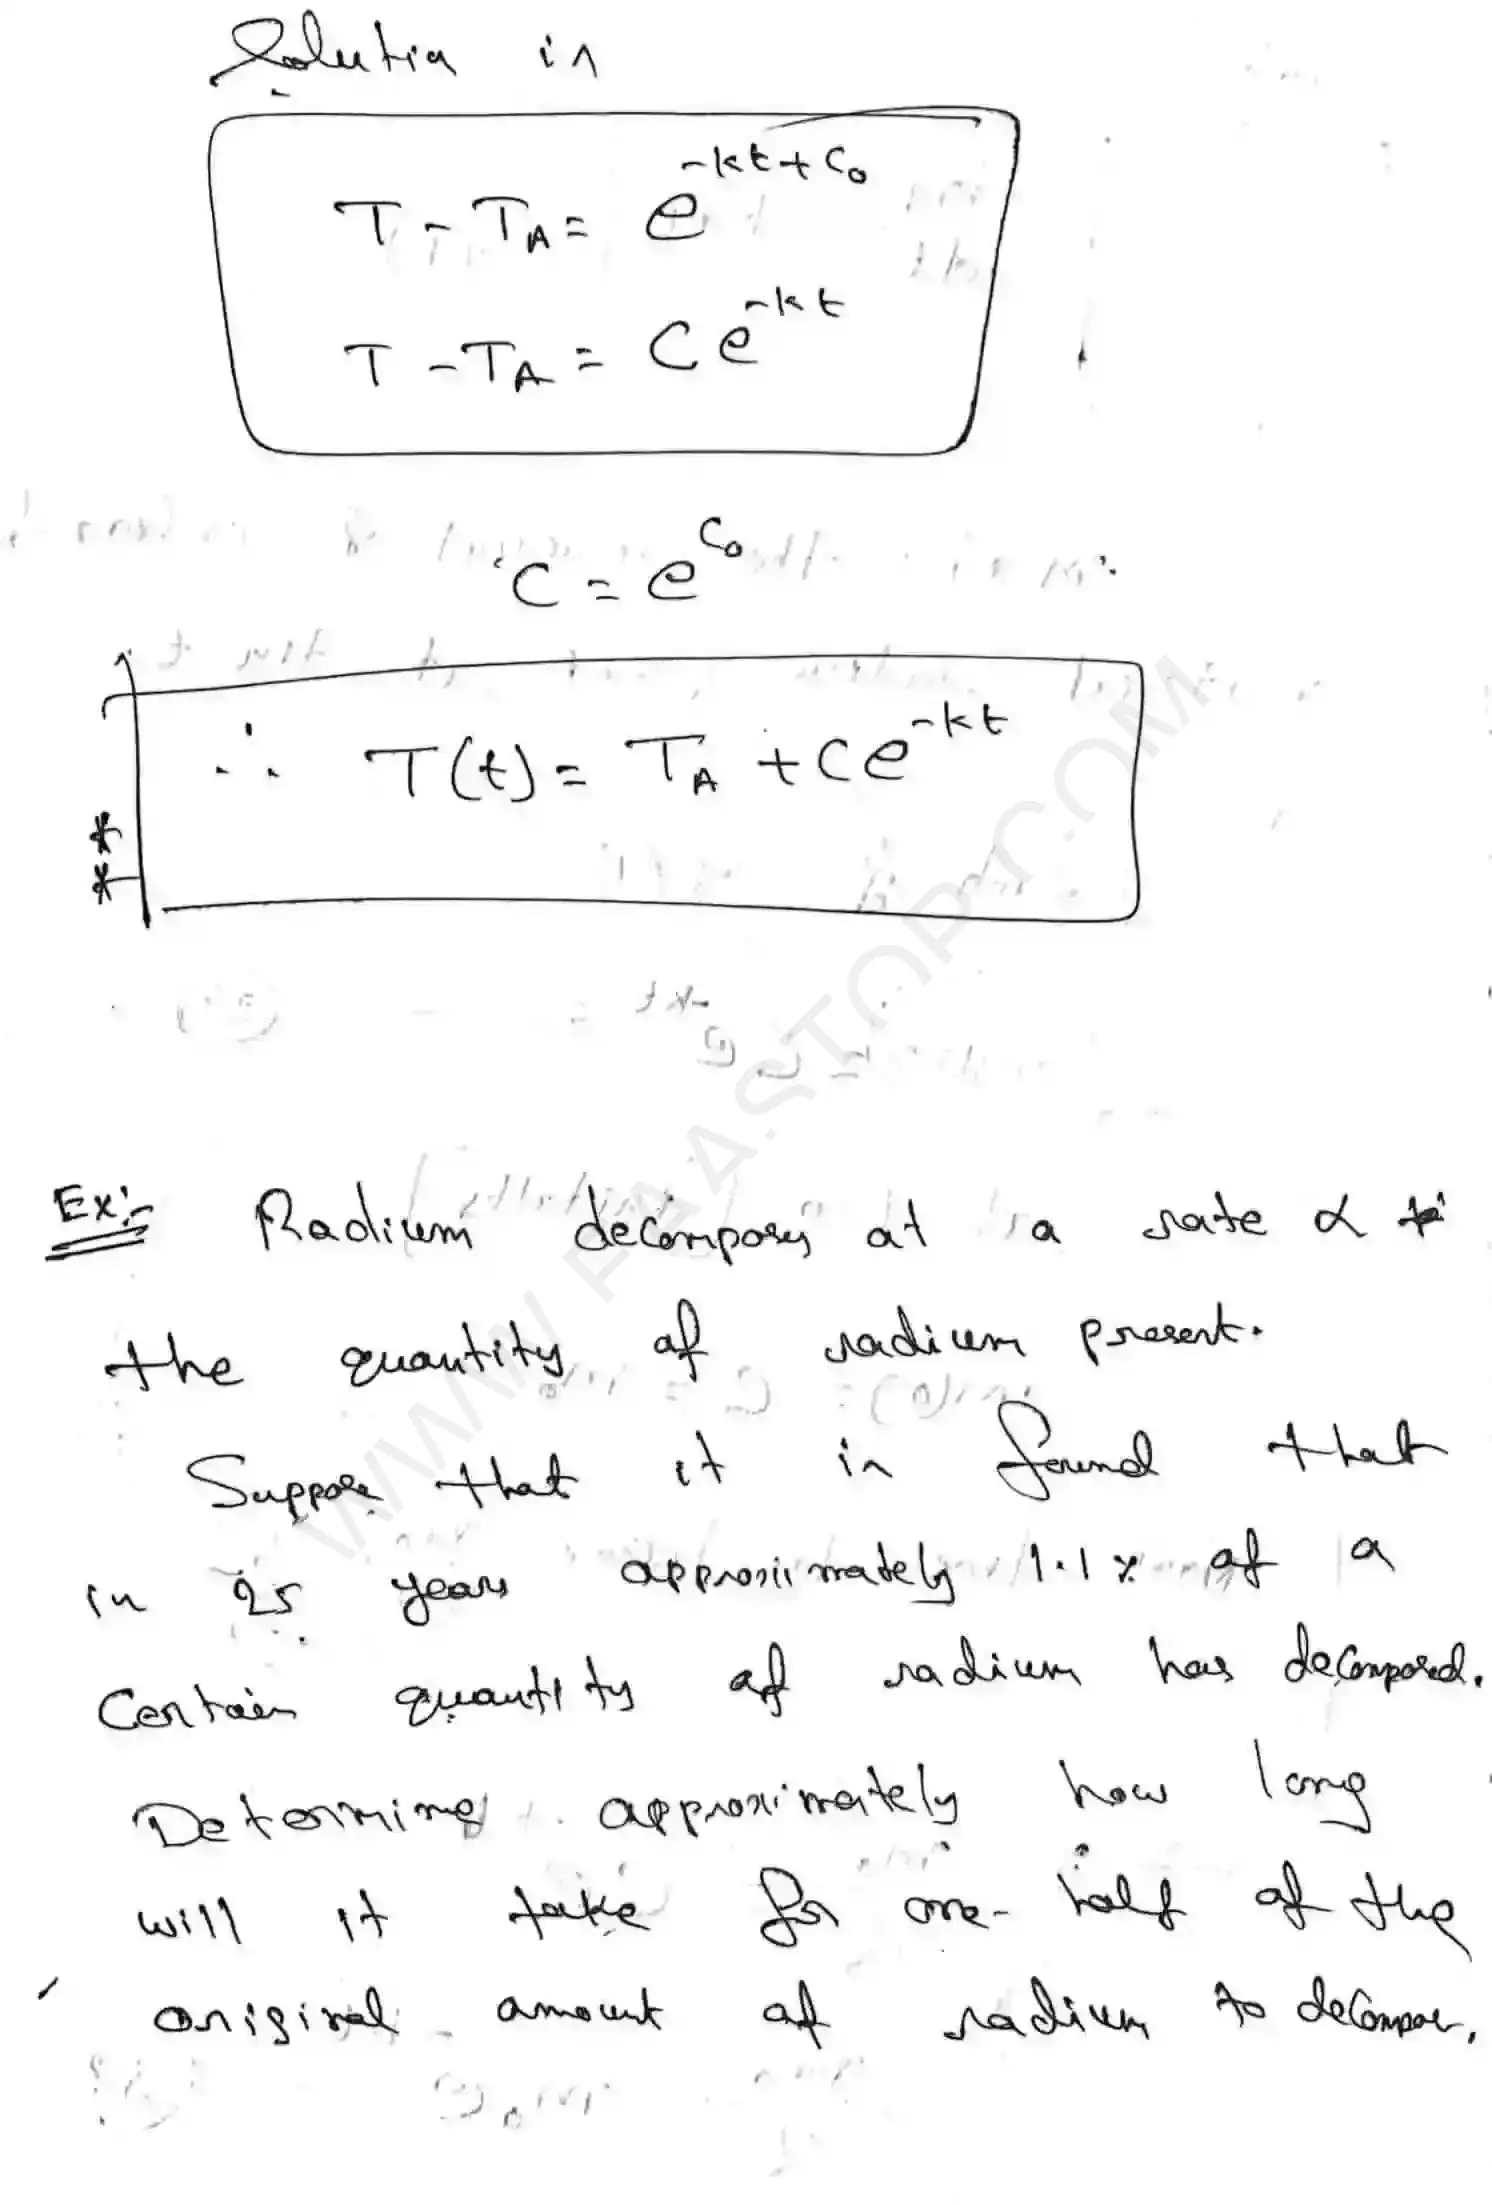 Solution is
T - T_A = e^{-kt + C_0}
T - T_A = Ce^{-kt}
C = e^{C_0}
∴ T(t) = T_A + Ce^{-kt}
**
Ex:- Radium decomposes at a rate ∝
the quantity of radium present.
Suppose that it is found that
in 25 years approximately 1.1% of a
Certain quantity of radium has decomposed.
Determine approximately how long
will it take for one-half of the
original amount of radium to decompose.
WWW.FAASTOP.COM